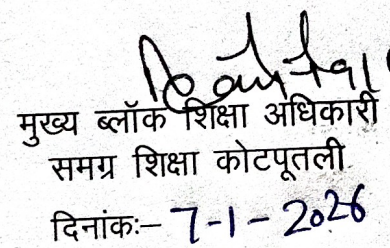 मुख्य ब्लॉक शिक्षा अधिकारी
समग्र शिक्षा कोटपूतली
दिनांकः– 7-1-2026